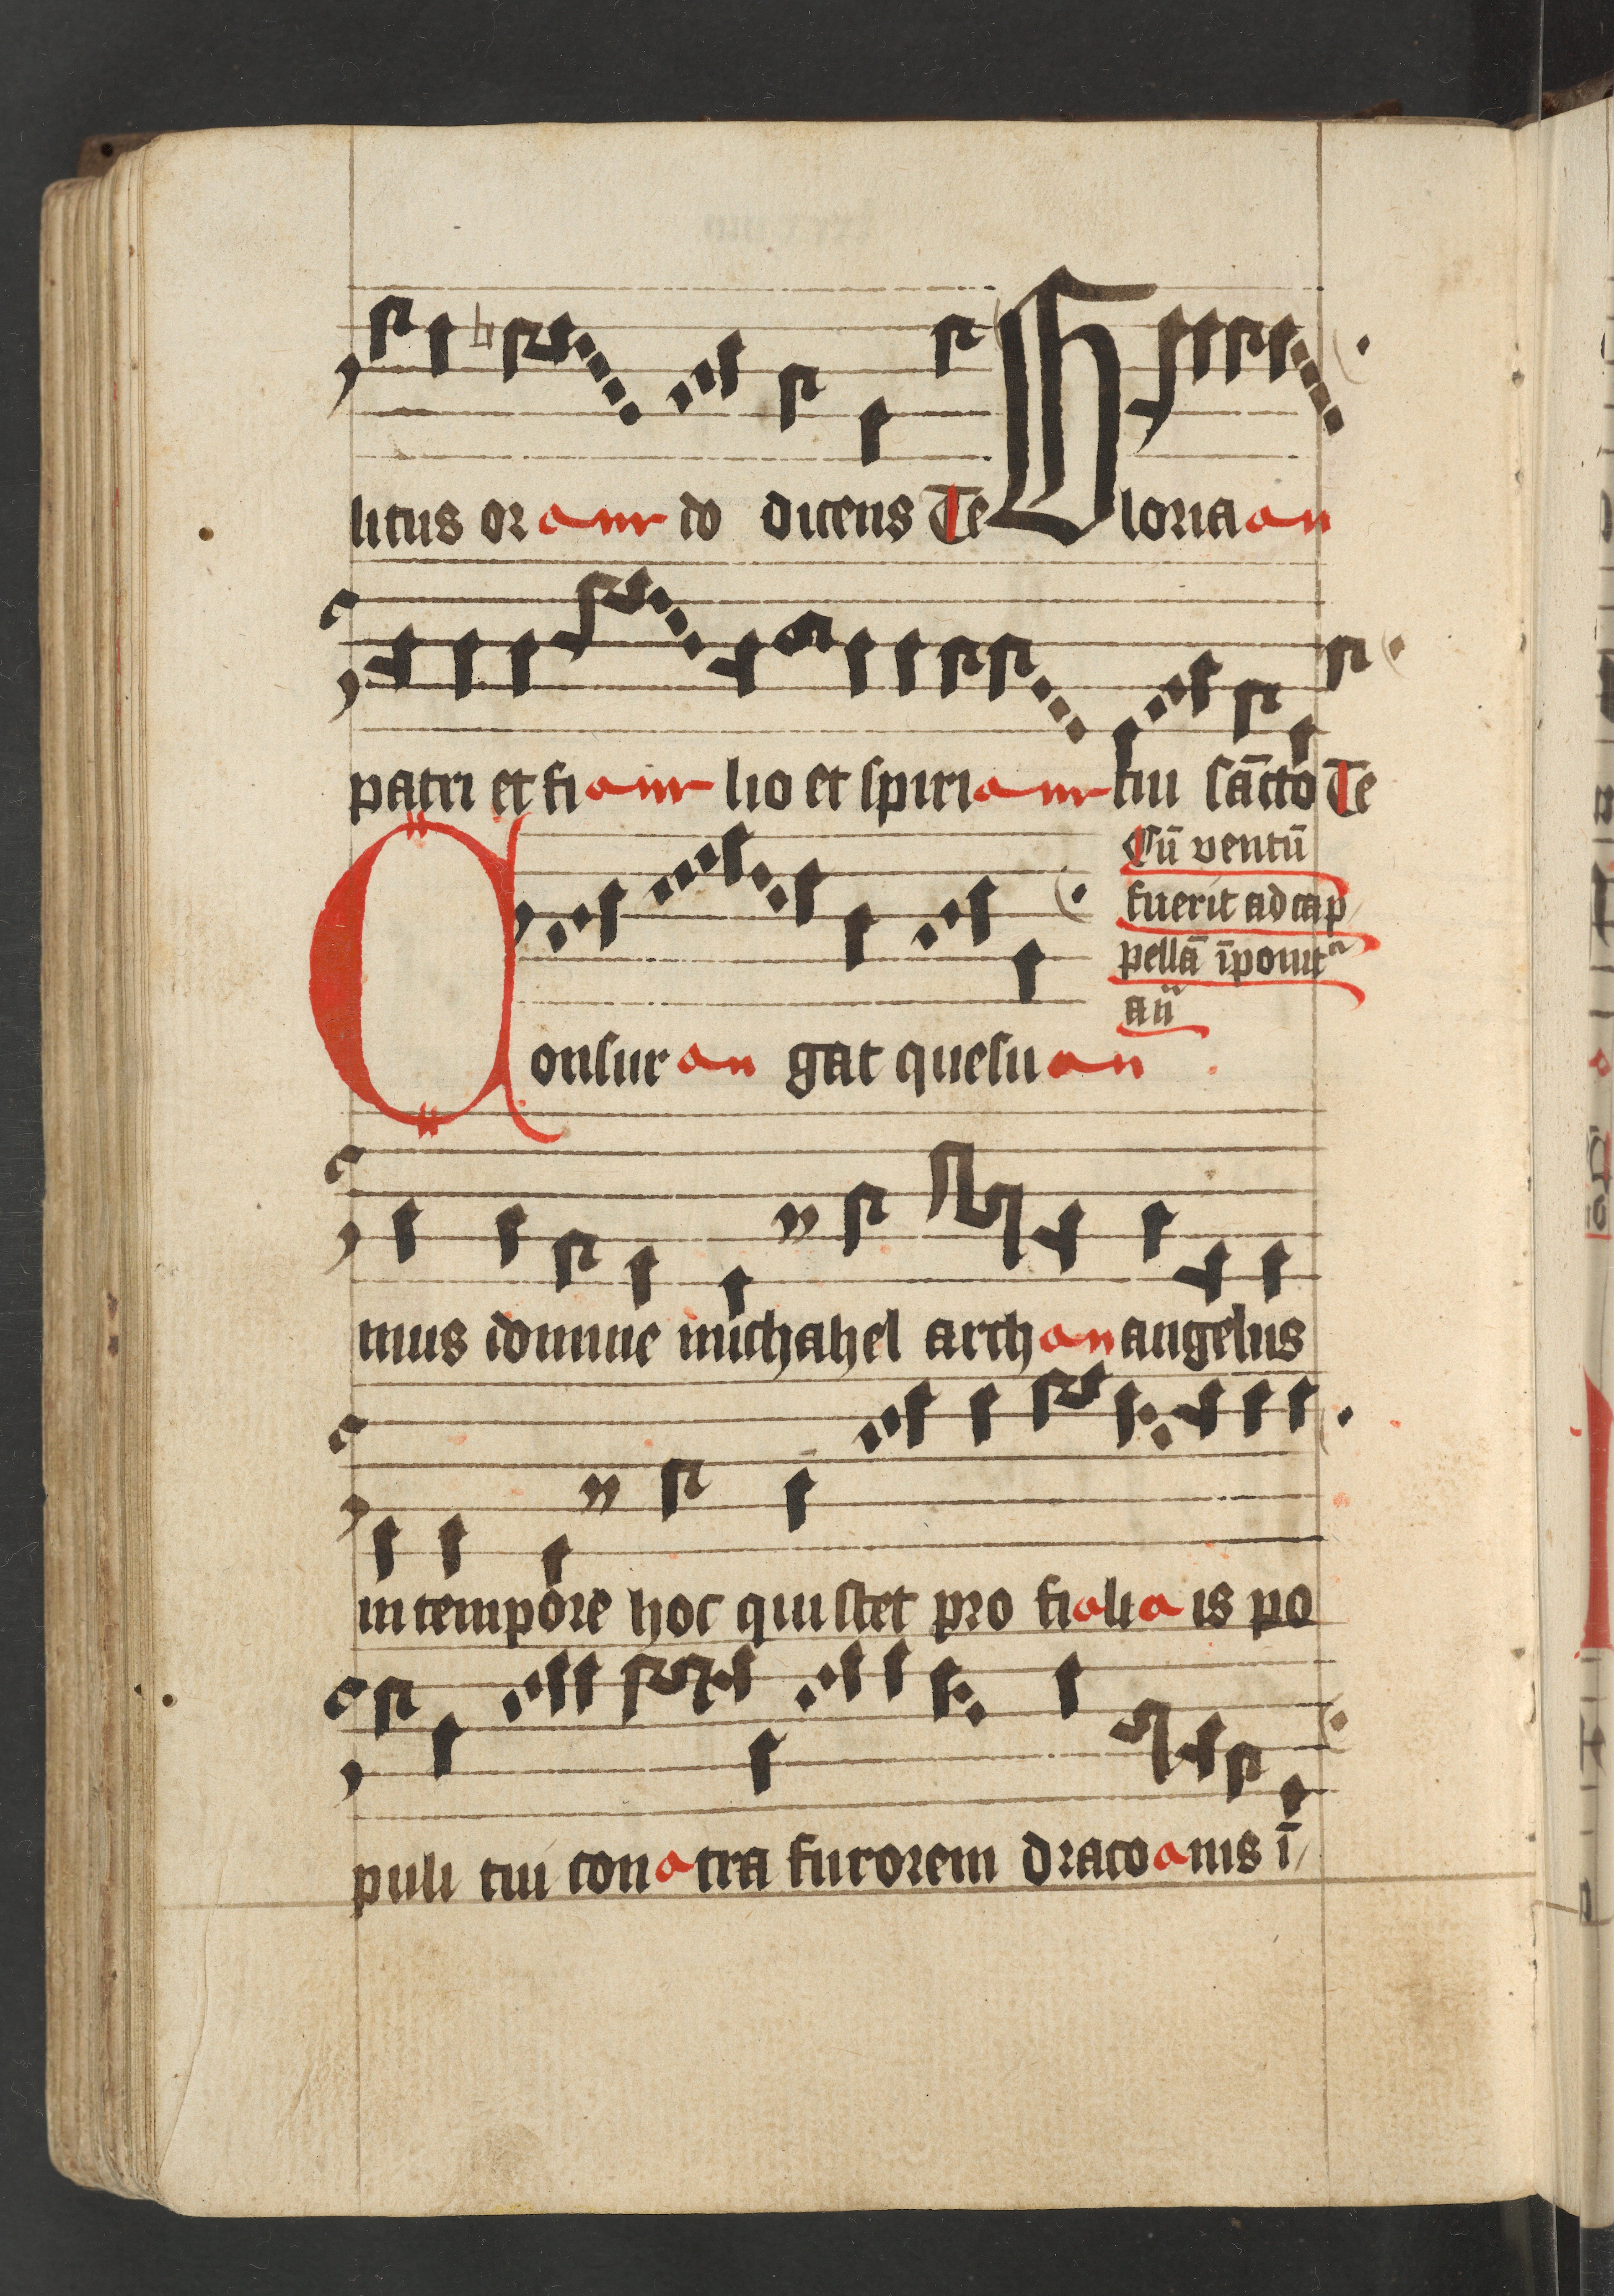 litus or do dicens Te Gloria
patri et fi lio et spiri tui sācto Te
Cū ventū
fuerit ad cap
pellā īponit
añ
Consur gat quesu
mus domine michahel arch angelus
in tempore hoc qui stet pro fi li is po
puli tui con tra furorem draco nis ī